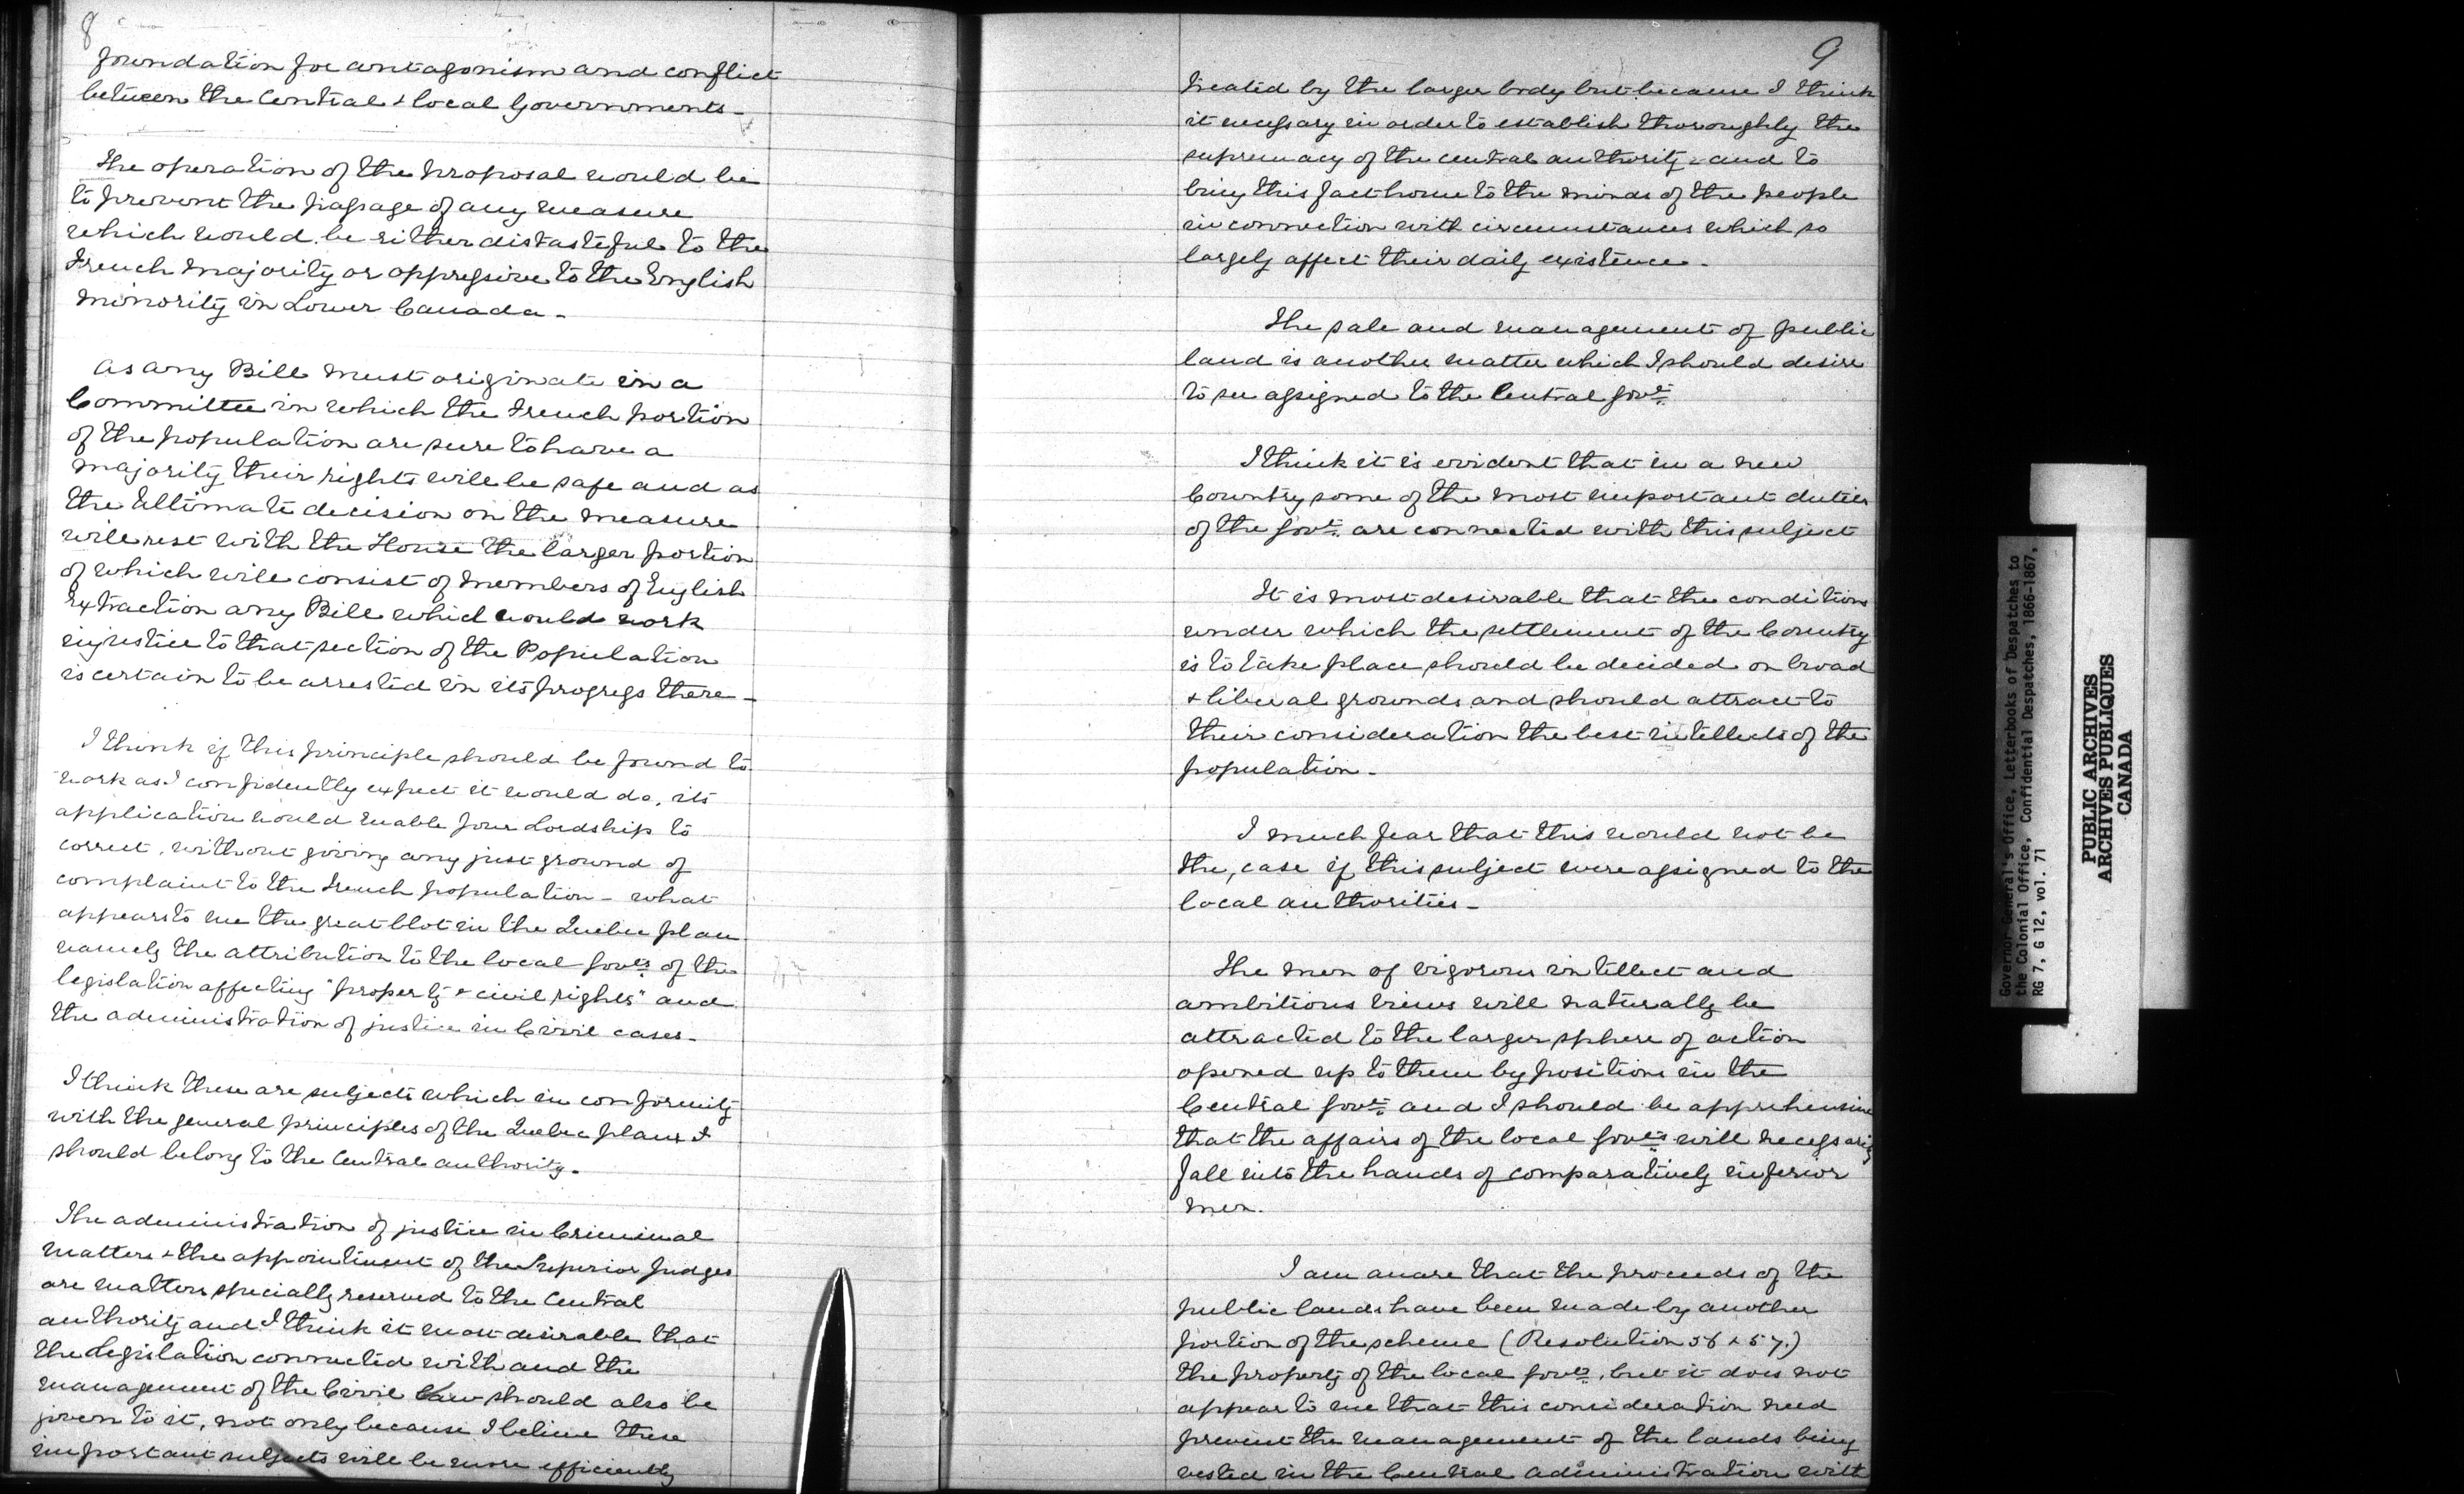 8
foundation for antagonism and conflict
between the Central & local Governments -
The operation of the proposal would be
to prevent the passage of any measure
which would be either distasteful to the
French majority or oppressive to the English
minority in Lower Canada -
As any Bill must originate in a
Committee in which the French portion
of the population are sure to have a
majority their rights will be safe and as
the Ultimate decision on the measure
will rest with the House the larger portion
of which will consist of members of English
Extraction any Bill which would work
injustice to that section of the Population
is certain to be arrested in its progress there -
I think if this principle should be found to
work as I confidently expect it would do, its
application would enable your Lordship to
correct, without giving any just ground of
complaint to the French population - what
appears to me the great blot in the Quebec plan
namely the attribution to the local Govts of the
legislation affecting "property & civil rights" and
the administration of justice in Civil cases -
I think these are subjects which in conformity
with the general principles of the Quebec plan
should belong to the Central authority -
The administration of justice in Criminal
matters & the appointment of the Superior Judges
are matters specially reserved to the Central
authority and I think it most desirable that
the Legislation connected with and the
management of the Civil Law should also be
given to it, not only because I believe these
important subjects will be more efficiently
9
treated by the larger body but because I think
it necessary in order to establish thoroughly the
supremacy of the central authority - and to
bring this fact home to the minds of the people
in connection with circumstances which so
largely affect their daily existence -
The sale and management of public
land is another matter which I should desire
to see assigned to the Central Govt.
I think it is evident that in a new
Country some of the most important duties
of the Govt. are connected with this subject
It is most desirable that the conditions
under which the settlement of the Country
is to take place should be decided on broad
& liberal grounds and should attract to
their consideration the best intellects of the
population -
I much fear that this would not be
the, case if this subject were assigned to the
local authorities -
The men of vigorous intellect and
ambitious views will naturally be
attracted to the larger sphere of action
opened up to them by positions in the
Central Govt. and I should be apprehensive
that the affairs of the local Govts. will necessarily
fall into the hands of comparatively inferior
men.
I am aware that the proceeds of the
public lands have been made by another
portion of the scheme (Resolution 56 & 57.)
the property of the local Govts., but it does not
appear to me that this consideration need
prevent the management of the lands being
vested in the Central administration with
Governor General's Office, Letterbooks of Despatches to
the Colonial Office, Confidential Despatches, 1866-1867,
RG 7, G 12, vol. 71
PUBLIC ARCHIVES
ARCHIVES PUBLIQUES
CANADA